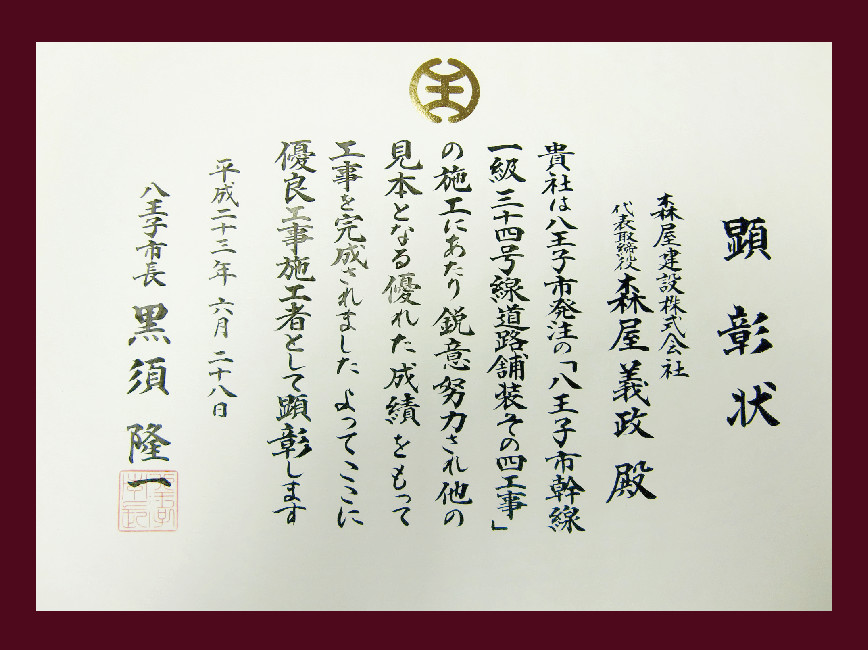 顕彰状
森屋建設株式会社
代表取締役 森屋義政 殿
貴社は八王子市発注の「八王子市幹線
一級三十四号線道路舗装その四工事」
の施工にあたり鋭意努力され他の
見本となる優れた成績をもって
工事を完成されました よってここに
優良工事施工者として顕彰します
平成二十三年 六月 二十八日
八王子市長 黒須 隆一